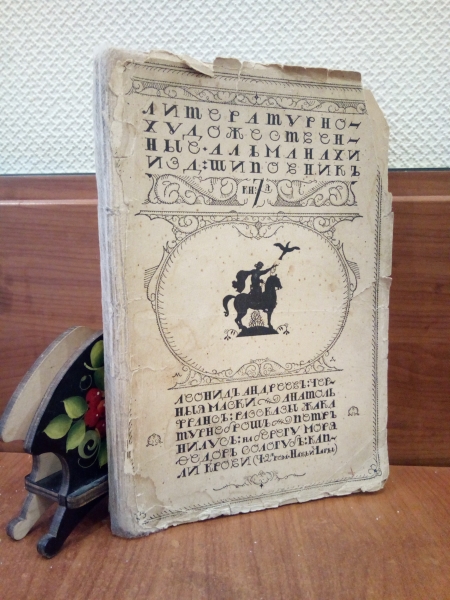 ЛИТЕРАТУРНО-
ХУДОЖЕСТВЕН-
НЫЕ·АЛЬМАНАХИ
ИЗД:ШИПОВНИКЪ
КН: 7Я
ЛЕОНИДЪ АНДРЕЕВЪ: ЧЕР-
НЫЯ МАСКИ АНАТОЛЬ
ФРАНСЪ: РАССКАЗЫ ЖАКА
ТУРНЕБРОШЪ ПЕТРЪ
НИЛУСЪ: НА БЕРЕГУ МОРЯ
ФЕДОРЪ СОЛОГУБЪ: КАП-
ЛИ КРОВИ (